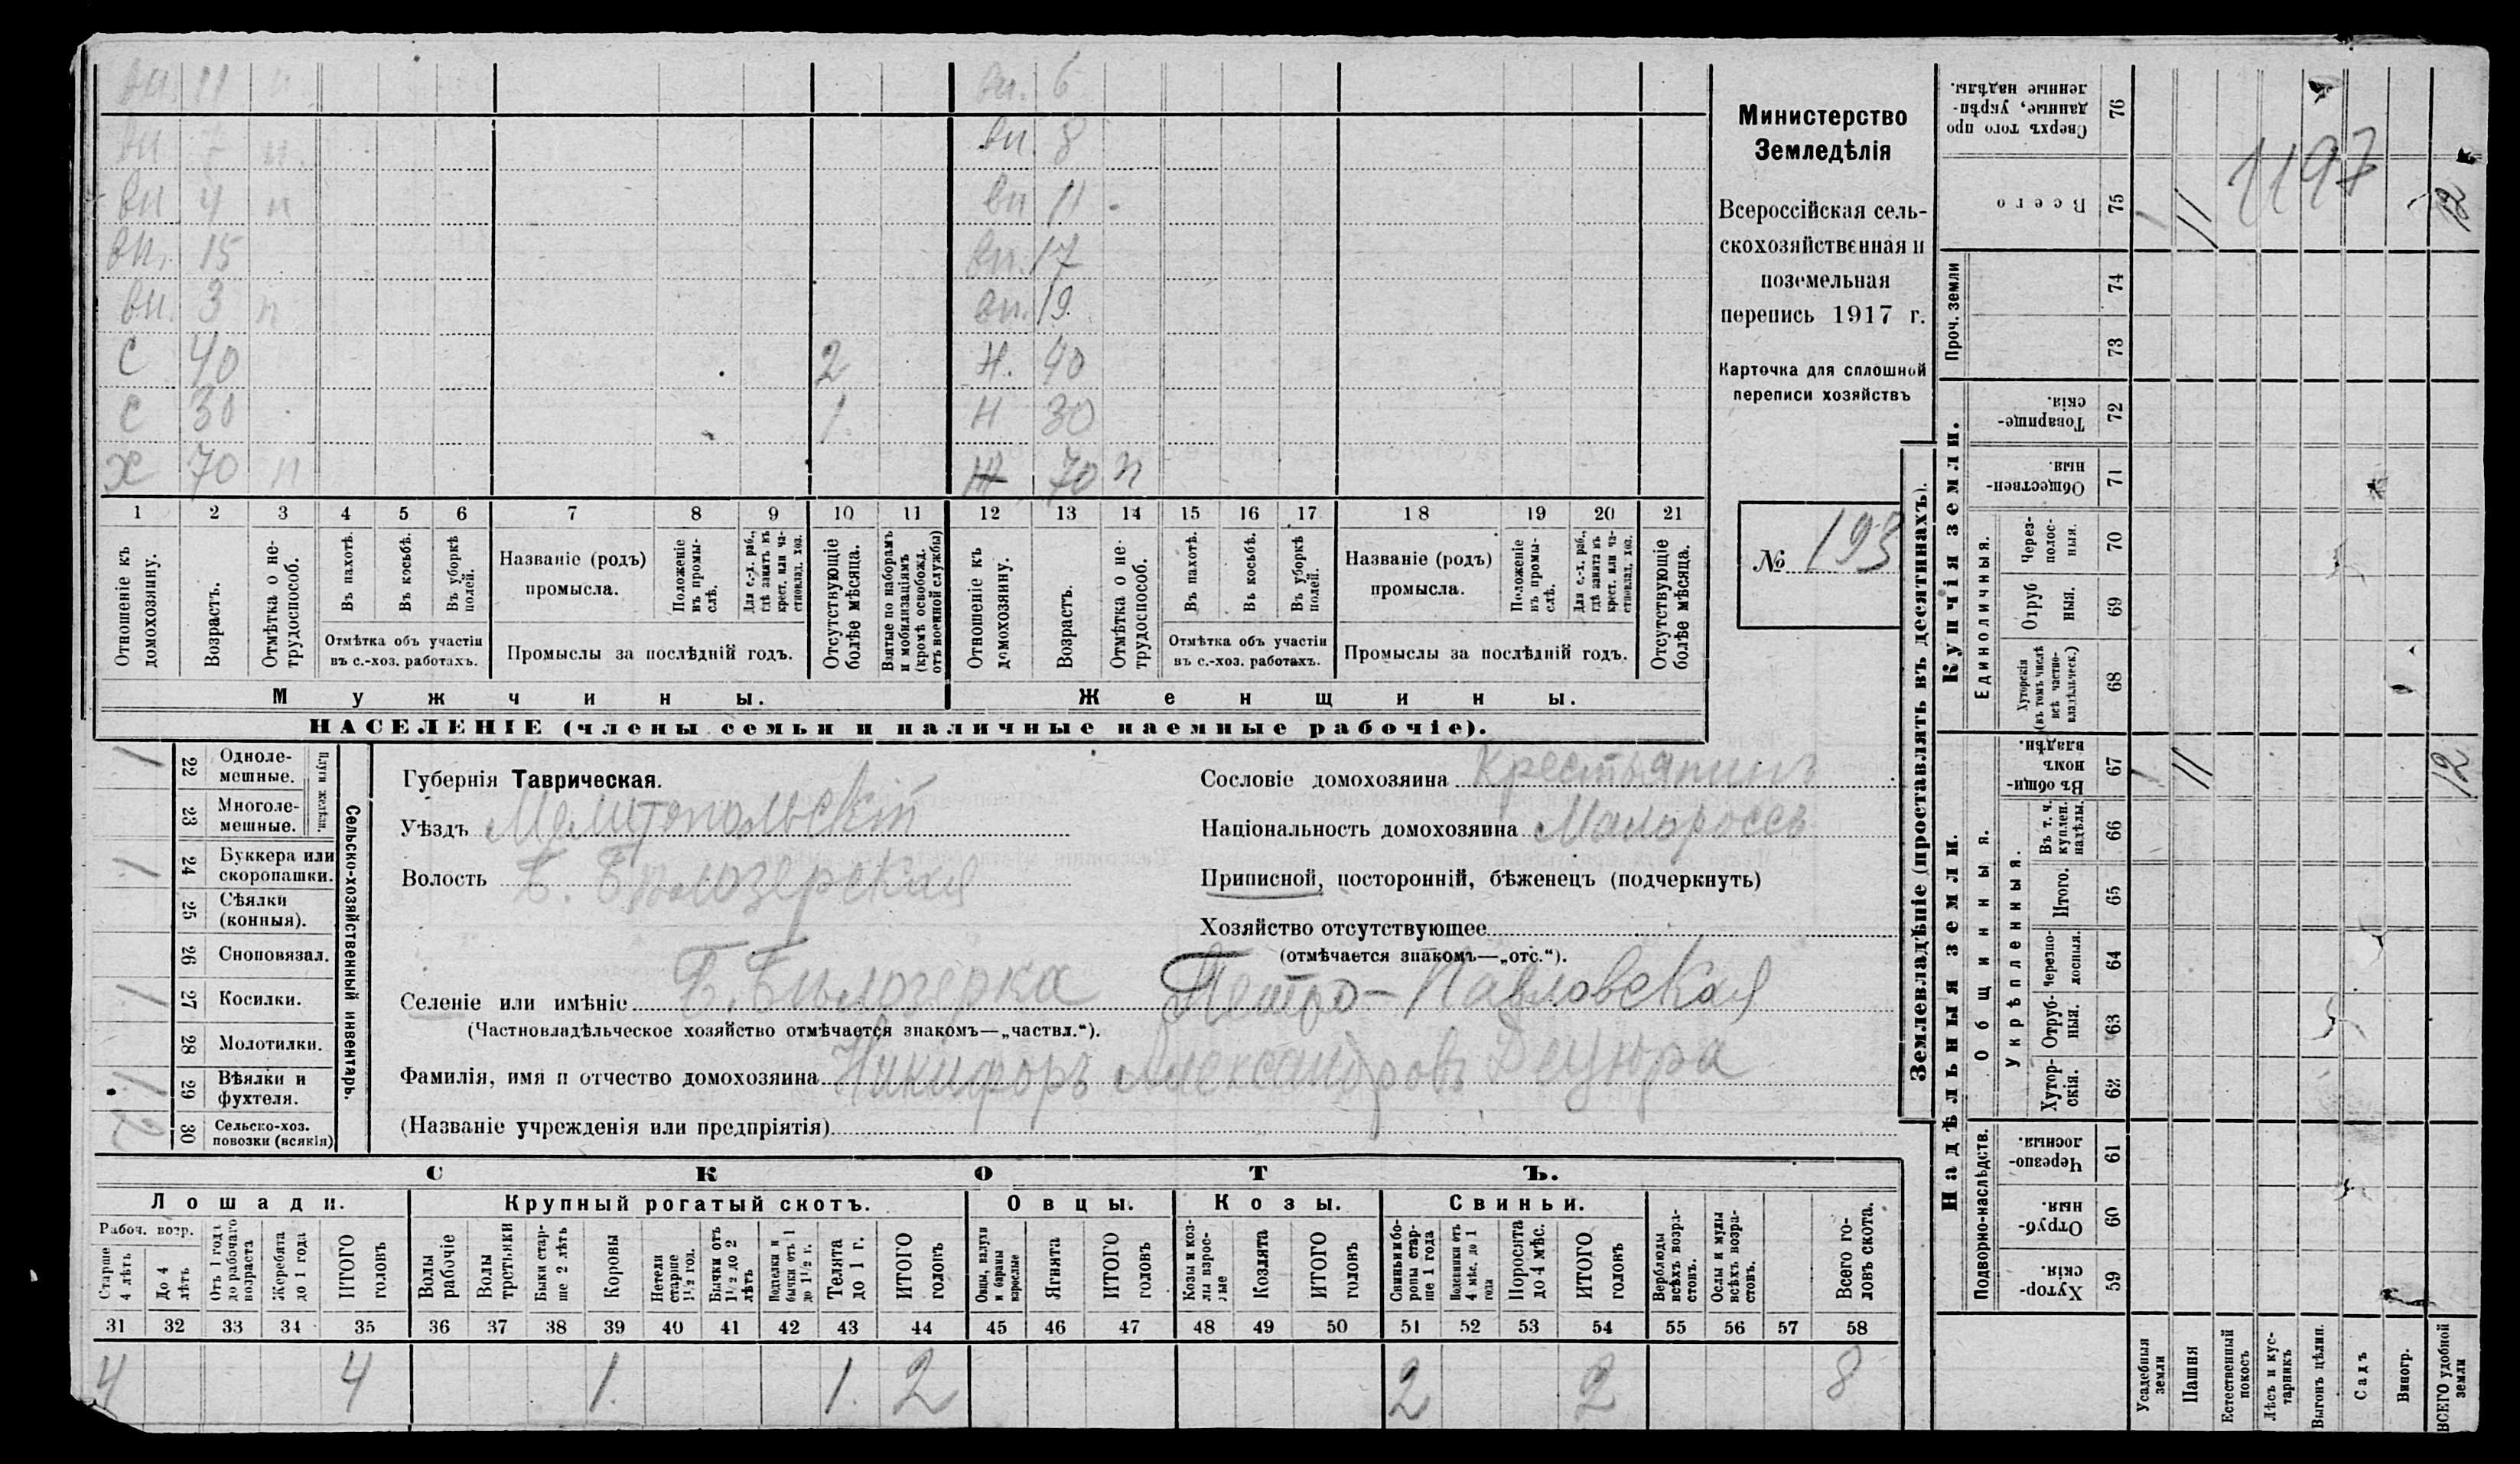 вн. 11 н вн. 6
вн 7 н. вн. 8
вн 4 н вн 11
вн. 15 вн. 17
вн. 3 н вн. 19
С 40 2 Н. 40
С 30 1. Н 30
Х 70 п Ж 70 п
1 2 3 4 5 6 7 8 9 10 11 12 13 14 15 16 17 18 19 20 21
Отношеніе къ домохозяину.
Возрастъ.
Отмѣтка о не-трудоспособ.
Въ пахотѣ.
Въ косьбѣ.
Въ уборкѣ полей.
Отмѣтка объ участіи
въ с.-хоз. работахъ.
Названіе (родъ)
промысла.
Положеніе въ промы-слѣ.
Для с.-х. раб., гдѣ занятъ въ крест. или ча-стновлад. хоз.
Промыслы за послѣдній годъ.
Отсутствующіе болѣе мѣсяца.
Взятые по наборамъ и мобилизаціямъ (кромѣ освобожд. отъ военной службы)
Отношеніе къ домохозяину.
Возрастъ.
Отмѣтка о не-трудоспособ.
Въ пахотѣ.
Въ косьбѣ.
Въ уборкѣ полей.
Отмѣтка объ участіи
въ с.-хоз. работахъ.
Названіе (родъ)
промысла.
Положеніе въ промы-слѣ.
Для с.-х. раб., гдѣ занята въ крест. или ча-стновлад. хоз.
Промыслы за послѣдній годъ.
Отсутствующіе болѣе мѣсяца.
Мужчины. Женщины.
НАСЕЛЕНІЕ (члены семьи и наличные наемные рабочіе).
Министерство
Земледѣлія
Всероссійская сель-
скохозяйственная и
поземельная
перепись 1917 г.
Карточка для сплошной
переписи хозяйствъ
№ 193
1 22 Одноле-мешные.
23 Многоле-мешные.
Плуги желѣзн.
1 24 Буккера или скоропашки.
25 Сѣялки (конныя).
26 Сноповязал.
1 27 Косилки.
28 Молотилки.
1 29 Вѣялки и фухтеля.
2 30 Сельско-хоз. повозки (всякія)
Сельско-хозяйственный инвентарь.
Губернія Таврическая.
Уѣздъ Мелитопольскій
Волость Б. Бѣлозерская
Селеніе или имѣніе Б. Бѣлозерка Петро-Павловская
(Частновладѣльческое хозяйство отмѣчается знакомъ—„частвл.“).
Фамилія, имя и отчество домохозяина Никифоръ Александровъ Децюра
(Названіе учрежденія или предпріятія)
Сословіе домохозяина Крестьянинъ
Національность домохозяина Малороссъ
Приписной, посторонній, бѣженецъ (подчеркнуть)
Хозяйство отсутствующее
(отмѣчается знакомъ—„отс.“).
СКОТЪ.
Лошади. Крупный рогатый скотъ. Овцы. Козы. Свиньи.
Рабоч. возр.
Старше 4 лѣтъ
До 4 лѣтъ
Отъ 1 года до рабочаго возраста
Жеребята до 1 года
ИТОГО головъ
Волы рабочіе
Волы третьяки
Быки стар-ше 2 лѣтъ
Коровы
Нетели старше 1½ год.
Бычки отъ 1½ до 2 лѣтъ
Подтелки и бычки отъ 1 до 1½ г.
Телята до 1 г.
ИТОГО головъ
Овцы, валухи и бараны взрослые
Ягнята
ИТОГО головъ
Козы и коз-лы взрос-лые
Козлята
ИТОГО головъ
Свиньи и бо-ровы стар-ше 1 года
Подсвинки отъ 4 мѣс. до 1 года
Поросята до 4 мѣс.
ИТОГО головъ
Верблюды всѣхъ возра-стовъ.
Ослы и мулы всѣхъ возра-стовъ.
Всего го-ловъ скота.
31 32 33 34 35 36 37 38 39 40 41 42 43 44 45 46 47 48 49 50 51 52 53 54 55 56 57 58
4 4 1. 1. 2 2 2 8
Землевладѣніе (проставлять въ десятинахъ).
Купчія земли.
Проч. земли
Единоличныя.
Надѣльныя земли.
Общинныя.
Укрѣпленныя.
Подворно-наслѣдств.
Сверхъ того про данные, укрѣп-ленные надѣлы. 76
Всего 75 1 11 12
1197
74
73
Товарище-скія. 72
Общественн-ныя. 71
Через-полос-ныя. 70
Отруб ныя. 69
Хуторскія (въ томъ числѣ всѣ частно-владѣльческ.) 68
Въ общи-номъ владѣн. 67 1 11 12
Въ т. ч. куплен. надѣлы. 66
Итого. 65
Черезпо-лосныя. 64
Отруб-ныя. 63
Хутор-скія. 62
Черезпо-лосныя. 61
Отруб-ныя. 60
Хутор-скія. 59
Усадебныя земли
Пашня
Естественный покосъ
Лѣсъ и кус-тарникъ
Выгонъ цѣлин.
Садъ
Виногр.
ВСЕГО удобной земли